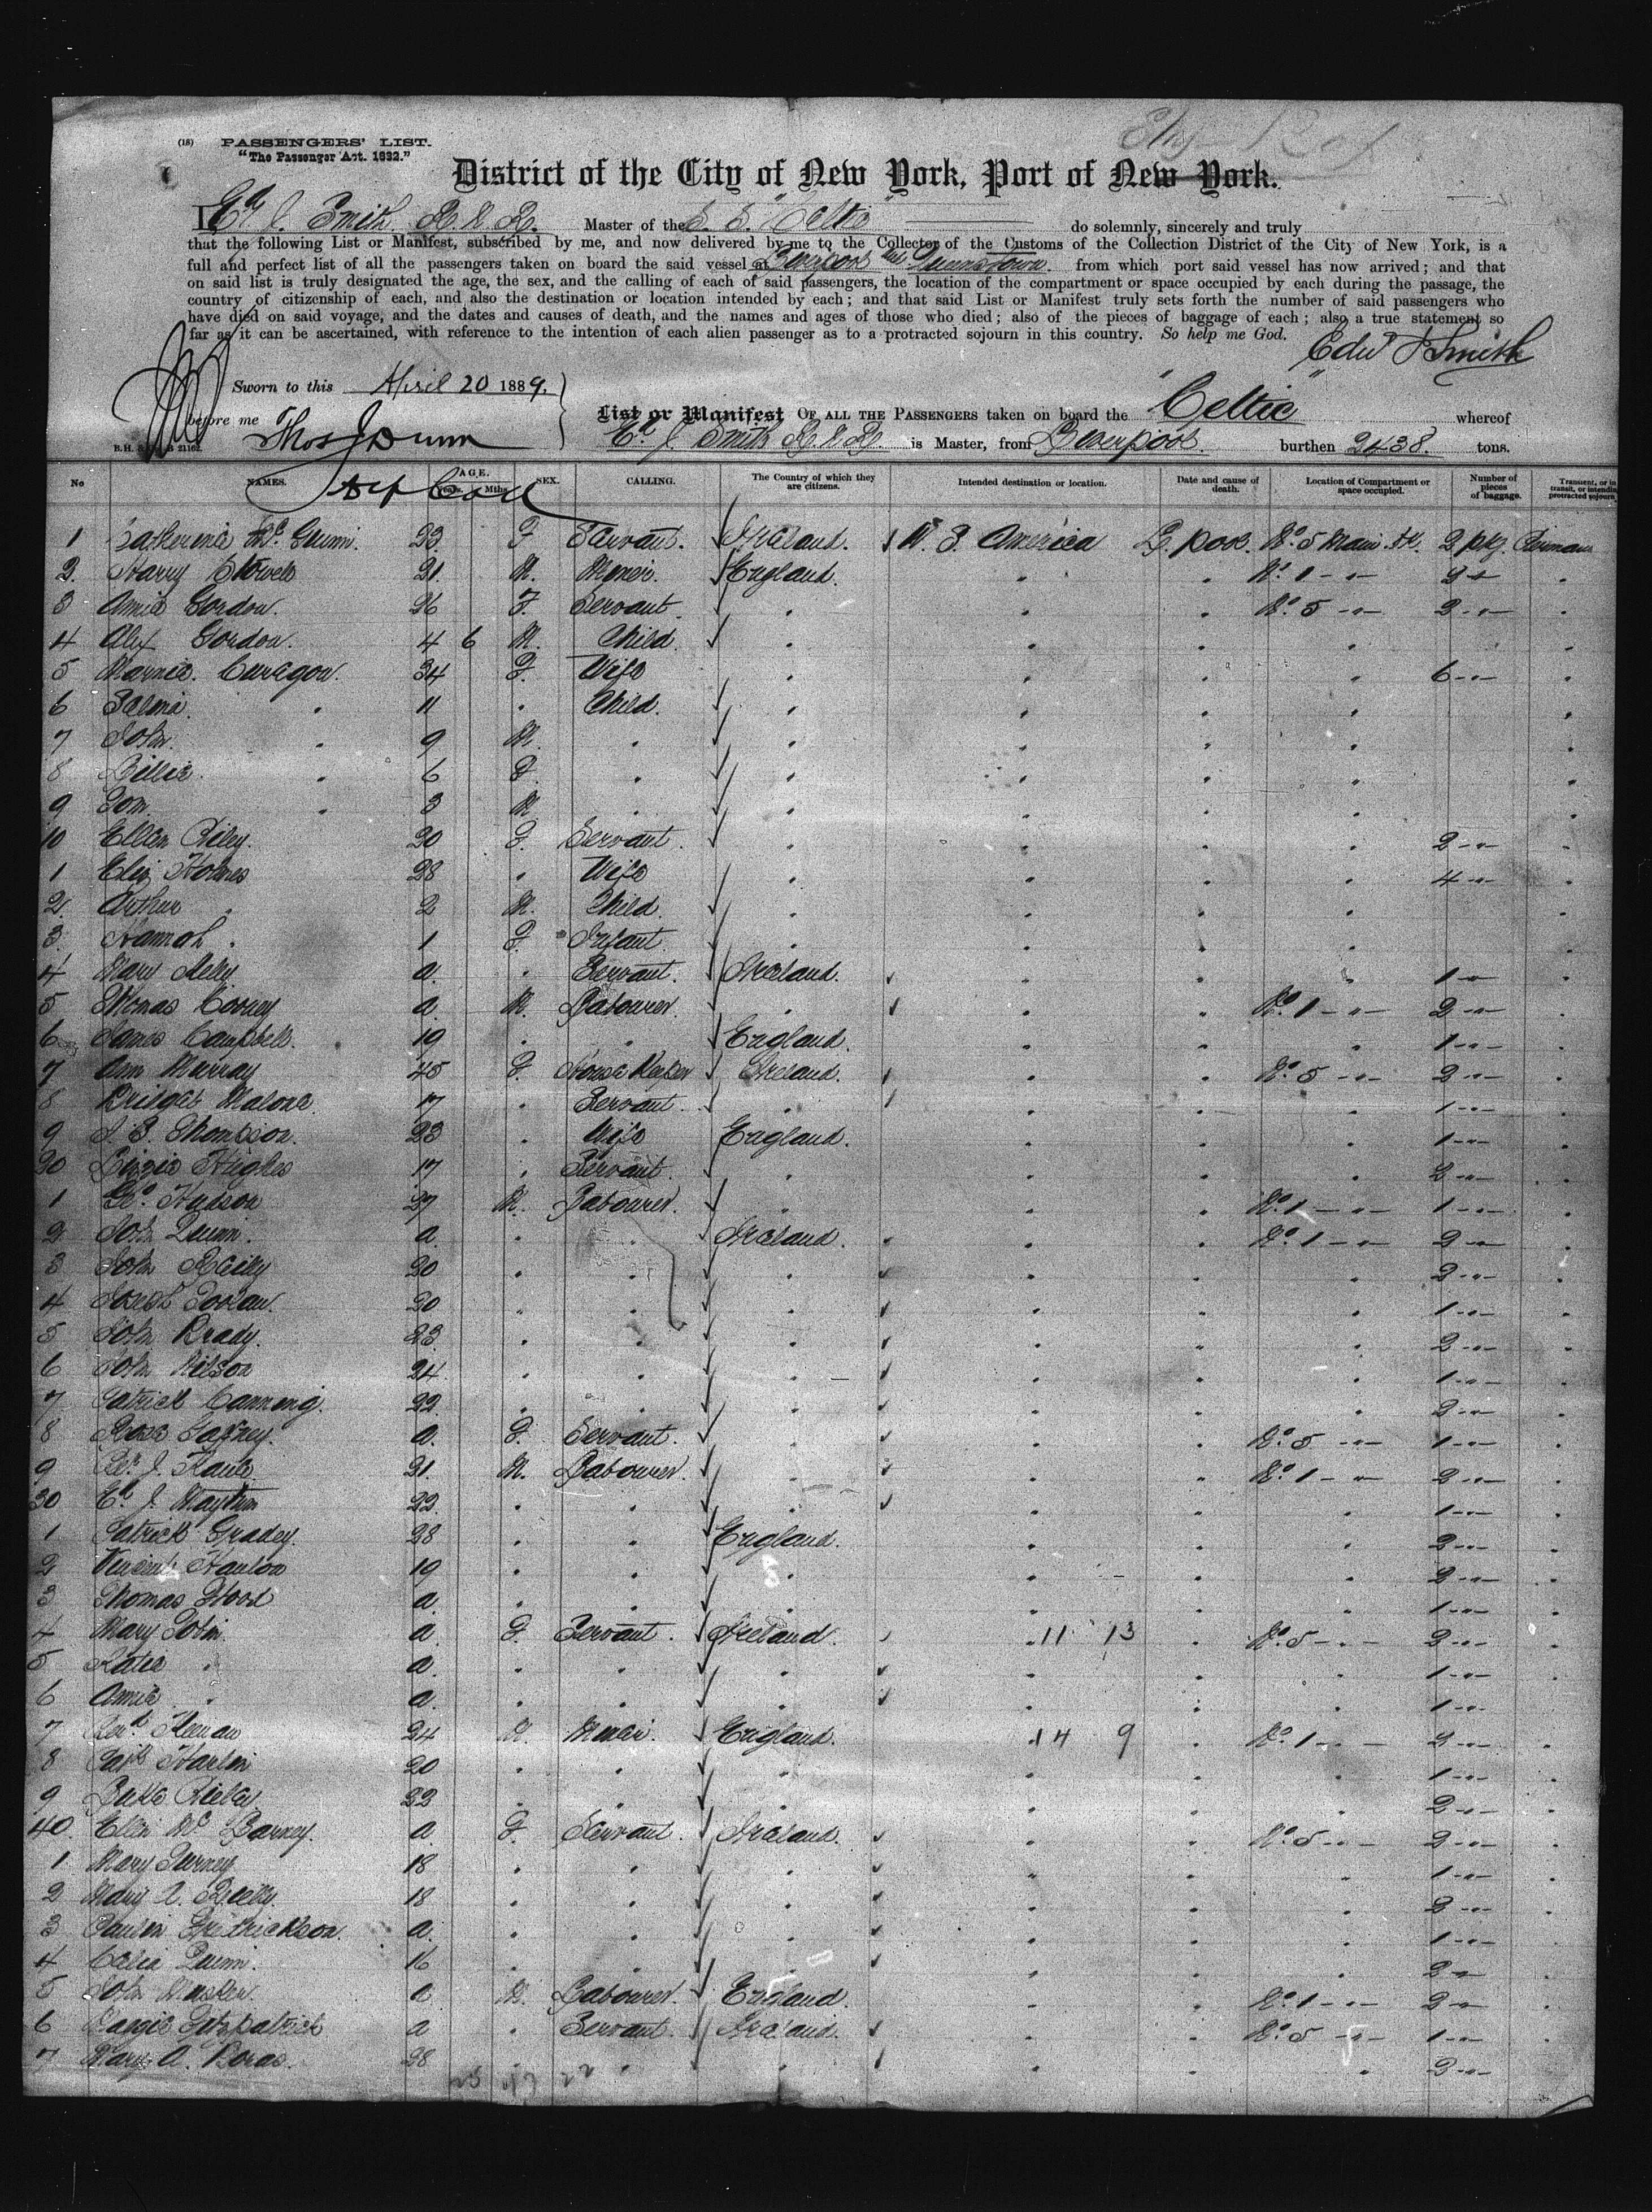 (15) PASSENGERS' LIST.
"The Passenger Act. 1882."
District of the City of New York, Port of New York.
I Ed. J. Smith. R.N.R. Master of the S. S. "Celtic" do solemnly, sincerely and truly
that the following List or Manifest, subscribed by me, and now delivered by me to the Collector of the Customs of the Collection District of the City of New York, is a
full and perfect list of all the passengers taken on board the said vessel at Liverpool and Queenstown. from which port said vessel has now arrived; and that
on said list is truly designated the age, the sex, and the calling of each of said passengers, the location of the compartment or space occupied by each during the passage, the
country of citizenship of each, and also the destination or location intended by each; and that said List or Manifest truly sets forth the number of said passengers who
have died on said voyage, and the dates and causes of death, and the names and ages of those who died; also of the pieces of baggage of each; also a true statement so
far as it can be ascertained, with reference to the intention of each alien passenger as to a protracted sojourn in this country. So help me God.
Edw J Smith
Sworn to this April 20 1889.
before me Thos J Dunn
List or Manifest OF ALL THE PASSENGERS taken on board the "Celtic" whereof
Ed. J. Smith R.N.R. is Master, from Liverpool. burthen 2438. tons.
No NAMES. AGE. Years. Mths. SEX. CALLING. The Country of which they are citizens. Intended destination or location. Date and cause of death. Location of Compartment or space occupied. Number of pieces of baggage. Transient, or in transit, or intending protracted sojourn
1 Catherine Mc 23 F Servant. Ireland. U. S. America L. pool. No. 5 Main Dk. 2 pkg.
2. Harry 21. M. Miner. England. " " No. 1 - " - 2 "
3 Annie Gordon. 26 F. Servant " " " No. 5 - " - 2 - " -
4 Alex Gordon. 4 6 M. Child. " " " "
5 34 F. Wife " " " " 6 - " -
6 Selina " 11 " Child. " " " "
7 John. " 9 M. " " " " "
8 Lillie. " 6 F. " " " " "
9 Tom " 3 M. " " " " "
10 Ellen Riley. 20 F. Servant. " " " " 2 - " -
1 Eliz Holmes 28 " Wife " " " " 4 - " -
2. Arthur " 2 M. Child. " " " "
3. Hannah " 1 F. Infant. " " " "
4 Mary a. " Servant. Ireland. " " " 1 - " -
5 Thomas Cooney a. M. Labourer. " " " No. 1 - " - 2 - " -
6 James Campbell. 19 " " England. " " " 1 - " -
7 Ann Murray 45 F. House Keeper Ireland. " " No. 5 - " - 2 - " -
8 Bridget Malone. 17 " Servant. " " " " 1 - " -
9 Thompson. 23 " Wife England. " " " 1 - " -
20 Lizzie Hughes 17 " Servant. " " " " 2 - " -
1 Geo. Hudson 27 M. Labourer. " " " No. 1 - " - 1 - " -
2 John Quinn. a. " " Ireland. " " No. 1 - " - 2 - " -
3 John Reilly 20 " " " " " " 2 - " -
4 Joseph 20 " " " " " " 1 - " -
5 John Brady. 23. " " " " " " 2 - " -
6 John Wilson 24. " " " " " " 1 - " -
7 Patrick Canning. 22. " " " " " " 2 - " -
8 Rose Gafney. a. F. Servant. " " " No. 5 - " - 1 - " -
9 21. M. Labourer. " " " No. 1 - " - 2 - " -
30 Ed. J. 22. " " " " " " 1 - " -
1 Patrick Gradey. 28 " " England. " " " 2 - " -
2 Vincent Hanlon 19 " " " " " " 2 - " -
3 Thomas Hood a. " " " " " " 1 - " -
4 Mary Tobin. a. F. Servant. Ireland. " 11 13 " No. 5 - " - 2 - " -
5 Katie " a. " " " " " " 1 - " -
6 Annie " a. " " " " " " 1 - " -
7 24 M. England. 14 9 " No. 1 - " - 2 - " -
8 20 " " " " " " 1 - " -
9 Luke 22 " " " " " " 2 - " -
40. Ellen Mc a. F. Servant. Ireland. " " No. 5 - " - 2 - " -
1 Mary 18 " " " " " " 1 - " -
2 Mary A. Reilly. 18 " " " " " " 2 - " -
3 a. " " " " " " 1 - " -
4 Celia Quinn. 16 " " " " " " 2 - " -
5 John a M. Labourer. England. " " No. 1 - " - 2 - " -
6 Maggie Fitzpatrick a " Servant. Ireland. " " No. 5 - " - 1 - " -
7 Mary A. 28 " " " " " " 2 - " -